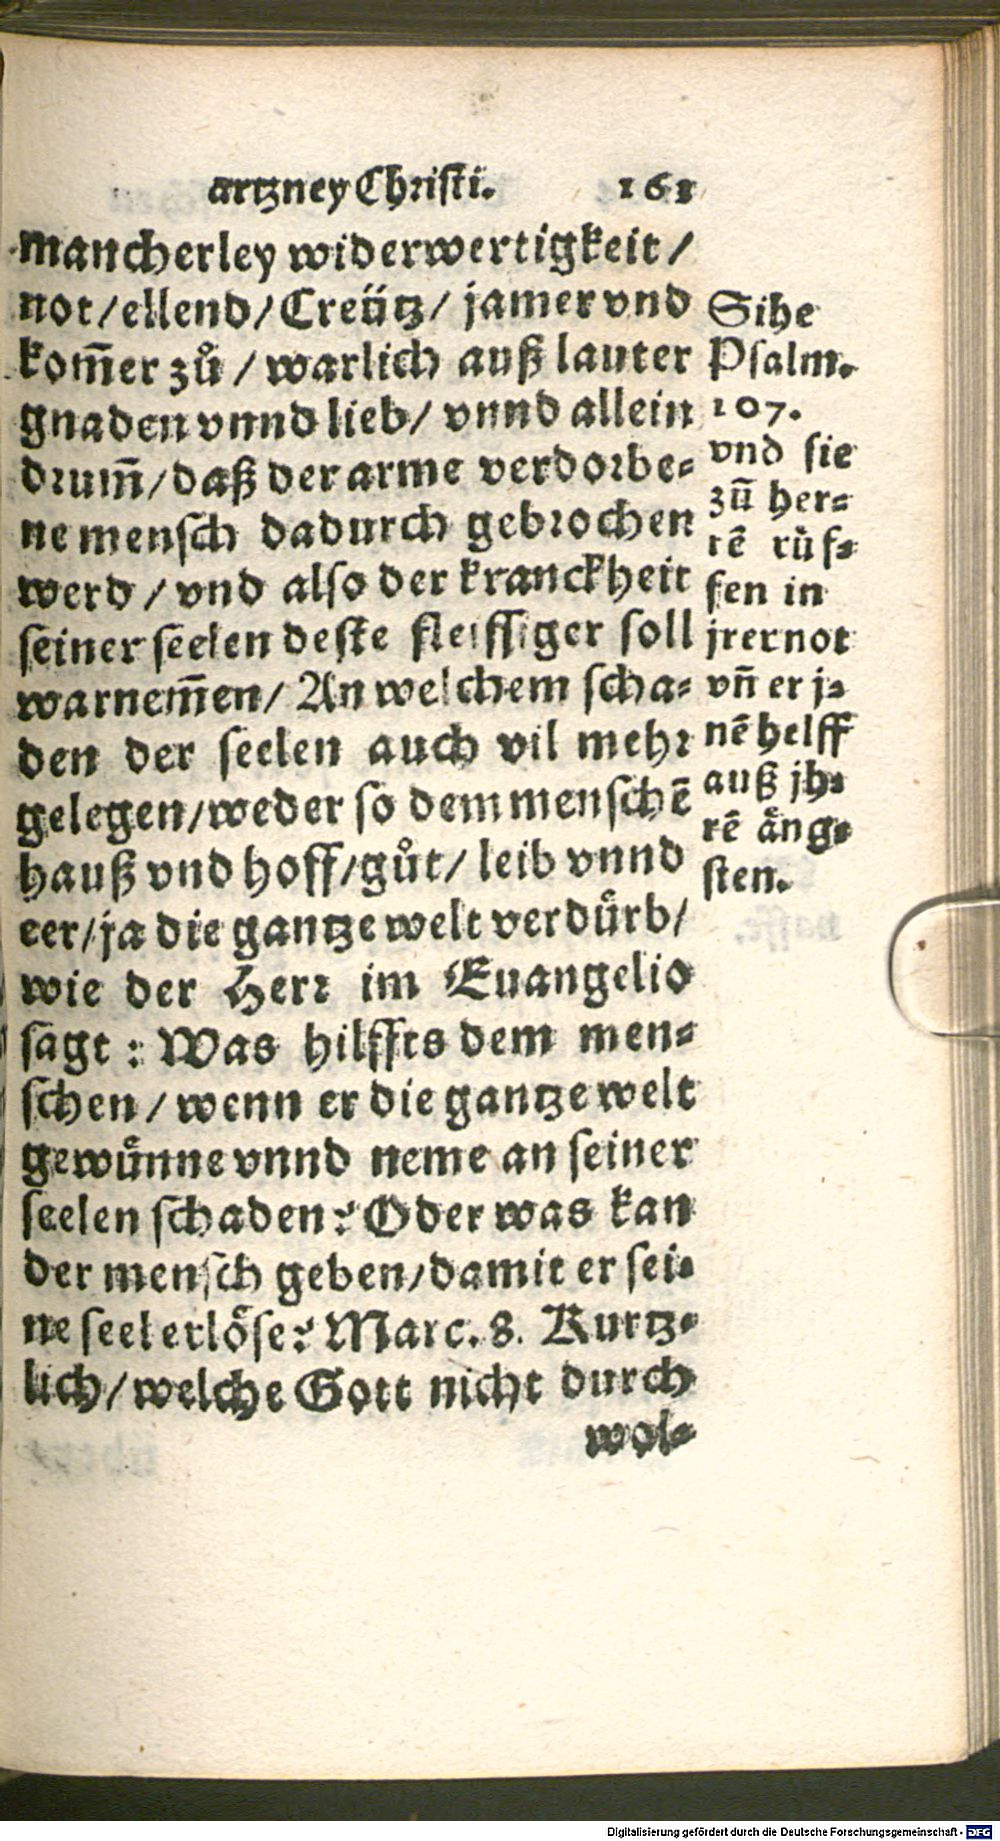 artzney Christi. 161
mancherley widerwertigkeit /
not / ellend / Creütz / jamer vnd
kom̃er zů / warlich auß lauter
gnaden vnnd lieb / vnnd allein
drum̃ / daß der arme verdorbe-
ne mensch dadurch gebrochen
werd / vnd also der kranckheit
seiner seelen deste fleissiger soll
warnem̃en / An welchem scha-
den der seelen auch vil mehr
gelegen / weder so dem menschẽ
hauß vnd hoff / gůt / leib vnnd
eer / ja die gantze welt verdürb /
wie der Herr im Euangelio
sagt : Was hilffts dem men-
schen / wenn er die gantze welt
gewünne vnnd neme an seiner
seelen schaden? Oder was kan
der mensch geben / damit er sei-
ne seel erlöse? Marc. 8. Kurtz-
lich / welche Gott nicht durch
wol-
Sihe
Psalm.
107.
vnd sie
zũ her-
rẽ růf-
fen in
jrer not
vñ er j-
nẽ helff
auß jh-
rẽ äng-
sten.
Digitalisierung gefördert durch die Deutsche Forschungsgemeinschaft - DFG